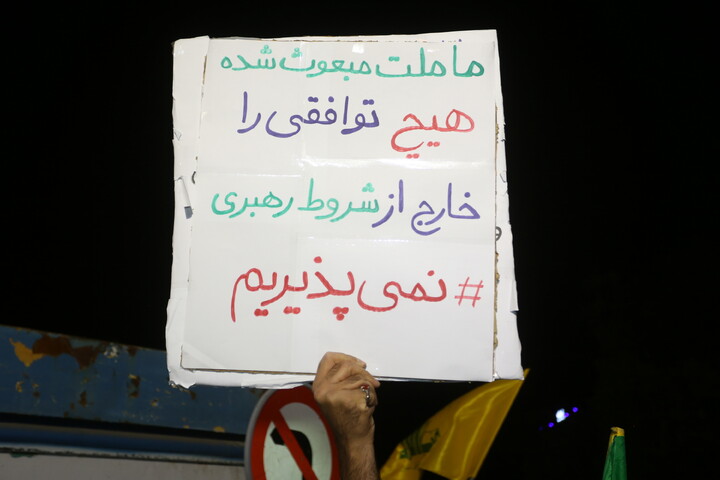 ما ملت مبعوث شده
هیچ توافقی را
خارج از شروط رهبری
#نمی پذیریم